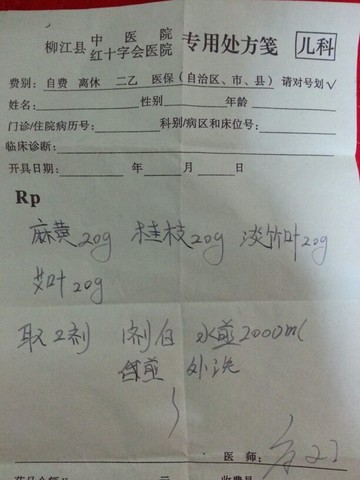 柳江县 中医院 红十字会医院 专用处方笺 儿科
费别：自费 离休 二乙 医保（自治区、市、县）请对号划√
姓名： 性别 年龄
门诊/住院病历号： 科别/病区和床位号：
临床诊断：
开具日期： 年 月 日
Rp
麻黄20g 桂枝20g 淡竹叶20g
艾叶20g
取2剂 1剂/日 水煎2000ml
外洗
医师：